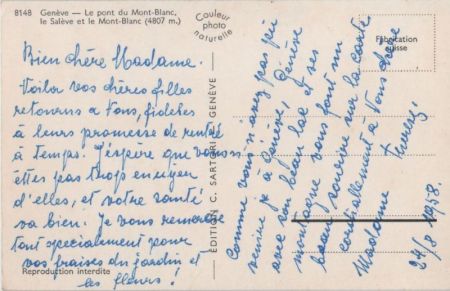 8148 Genève — Le pont du Mont-Blanc,
le Salève et le Mont-Blanc (4807 m.)
Couleur
photo
naturelle
Fabrication
suisse
Bien chère Madame.
Voilor vos chères filles
retourens a Vous, fidèles
à leurs promesse de rentré
à temps. J'espère que vous
êttes pas trop ennuyer
d'elles, et votre santé
va bien. Je vous remercie
tout specialement pour
vos fraises du jardin et
les fleurs!
Reproduction interdite
ÉDITION C. SARTORI GENÈVE
Comme vous n'avez pas peu
venire à Genève, Genève
avec son beau lac et ses
montagne vous font un
beau sourire sur la carte
cordialement à Vous chère
Madame
24/8 1958.